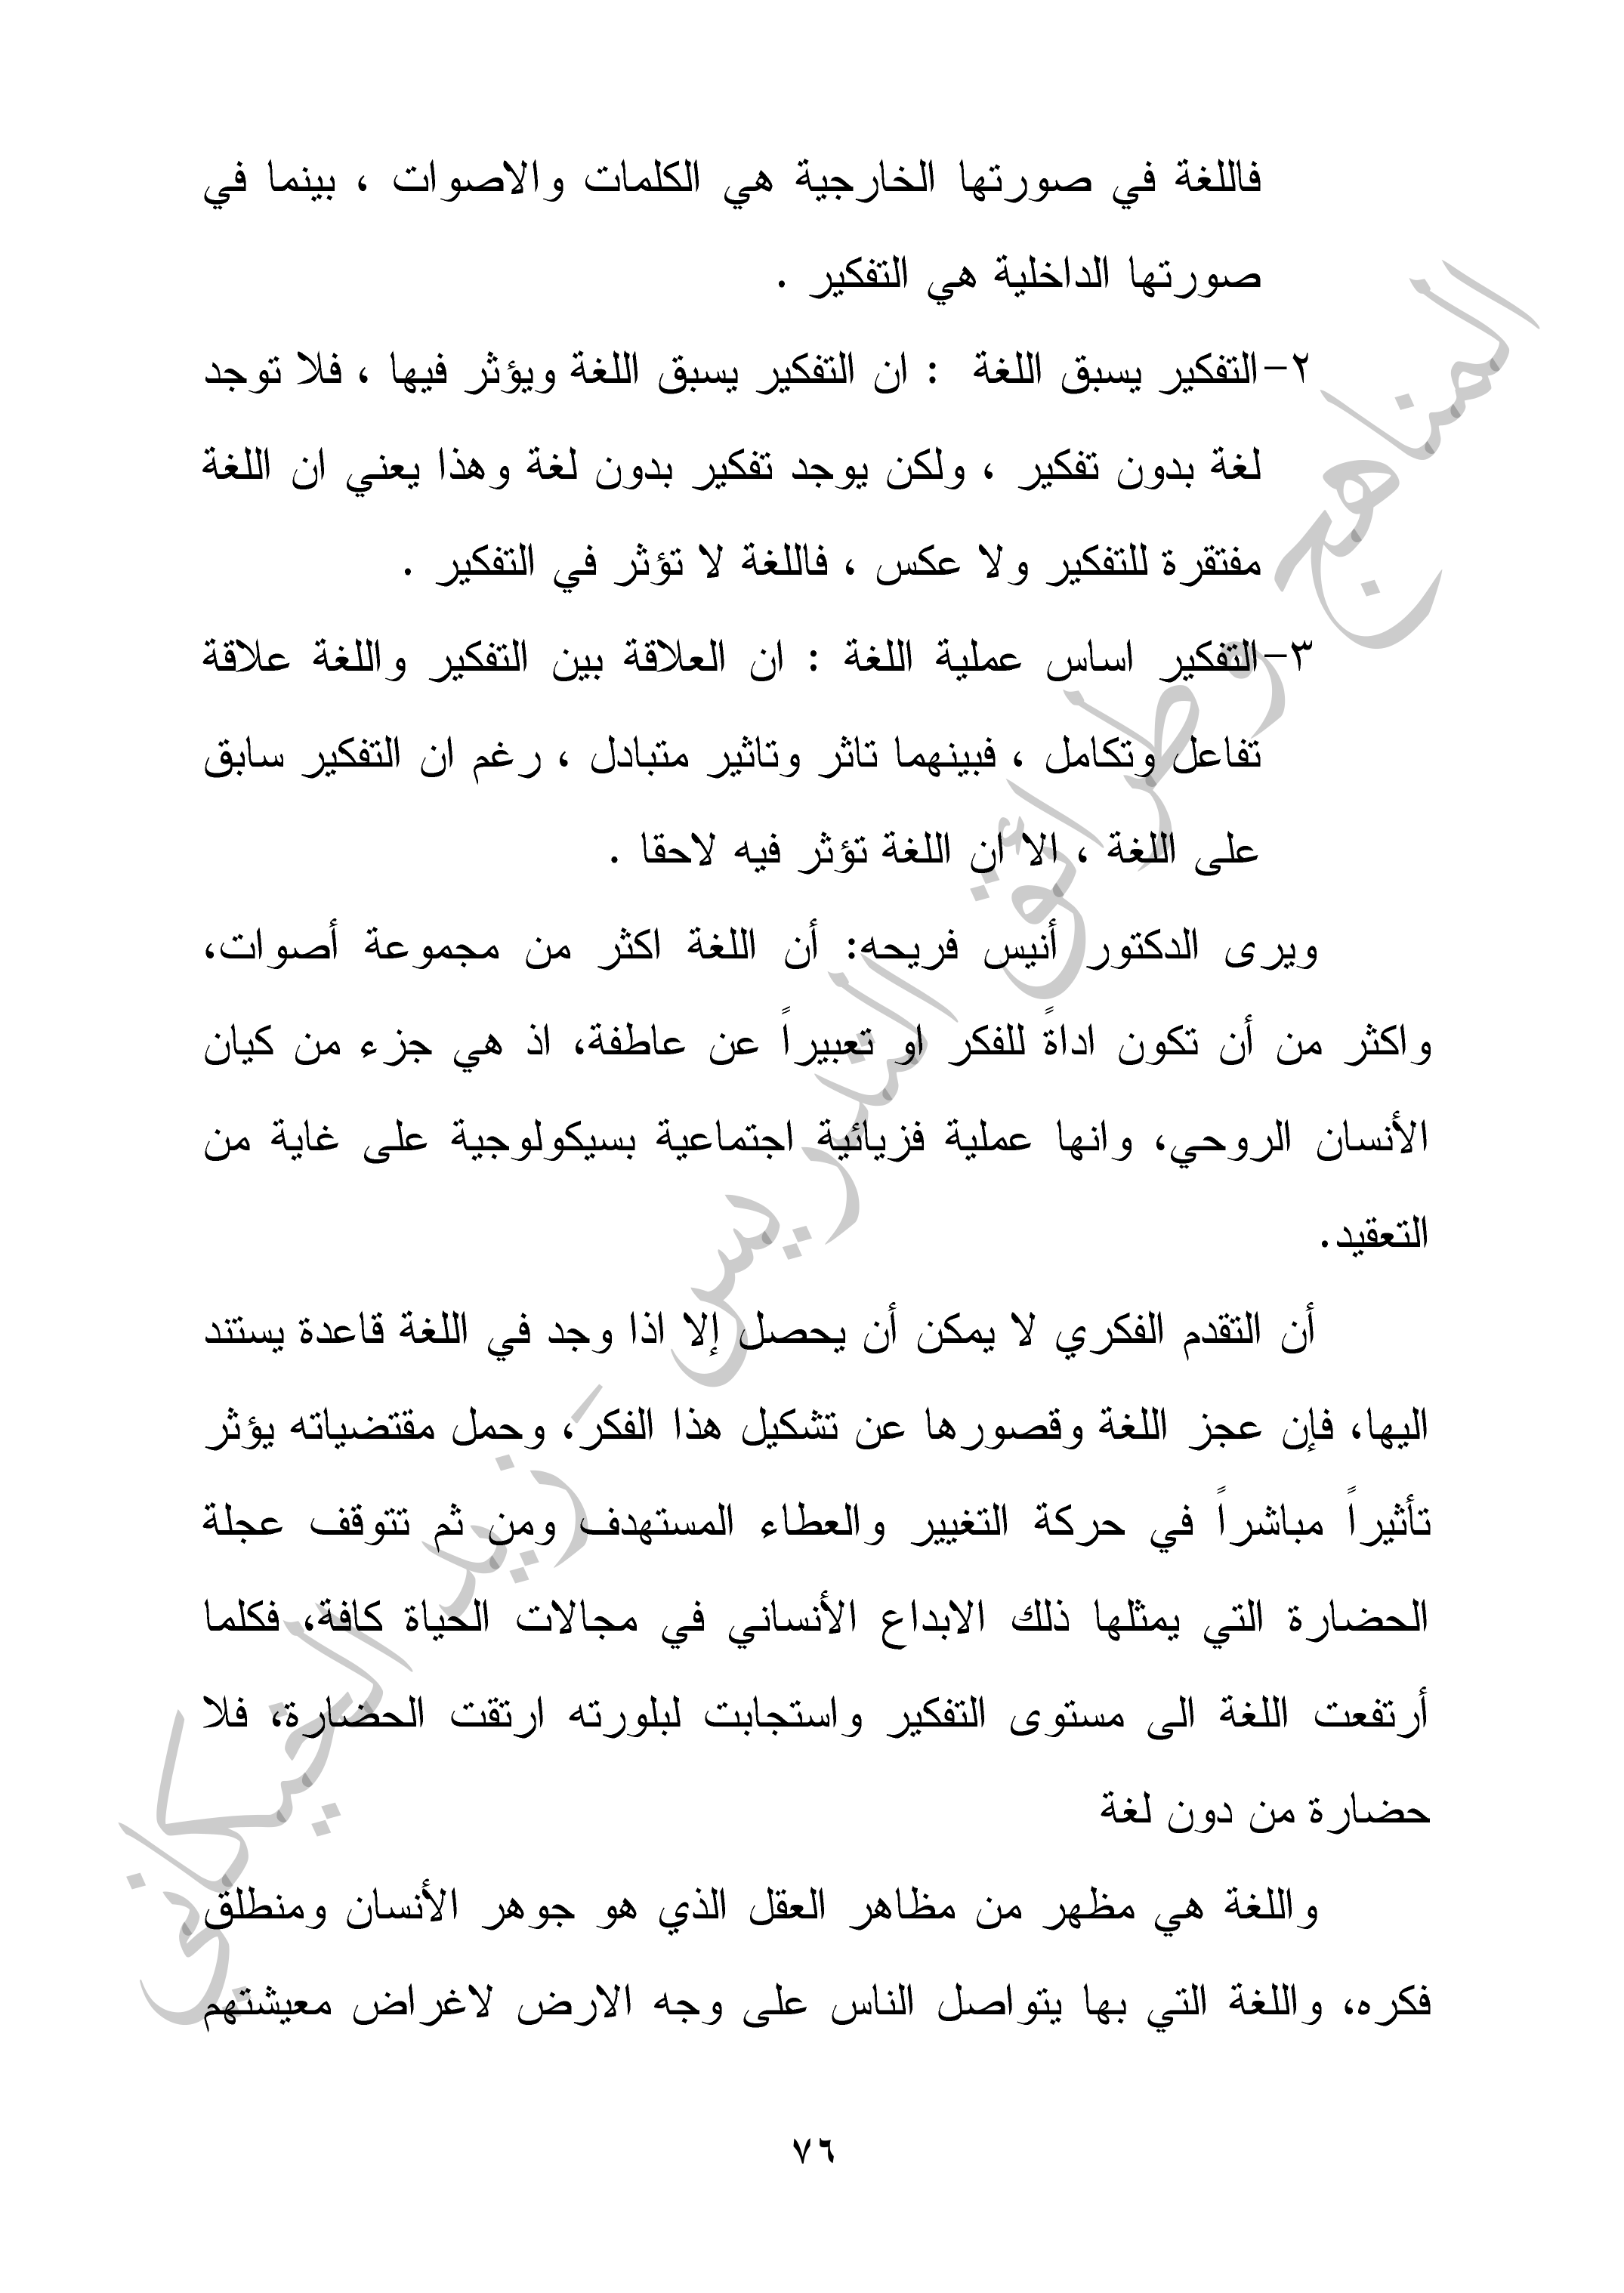 فاللغة في صورتها الخارجية هي الكلمات والاصوات ، بينما في
صورتها الداخلية هي التفكير .
٢-التفكير يسبق اللغة : ان التفكير يسبق اللغة ويؤثر فيها ، فلا توجد
لغة بدون تفكير ، ولكن يوجد تفكير بدون لغة وهذا يعني ان اللغة
مفتقرة للتفكير ولا عكس ، فاللغة لا تؤثر في التفكير .
٣-التفكير اساس عملية اللغة : ان العلاقة بين التفكير واللغة علاقة
تفاعل وتكامل ، فبينهما تاثر وتاثير متبادل ، رغم ان التفكير سابق
على اللغة ، الا ان اللغة تؤثر فيه لاحقا .
ويرى الدكتور أنيس فريحه: أن اللغة اكثر من مجموعة أصوات،
واكثر من أن تكون اداةً للفكر او تعبيراً عن عاطفة، اذ هي جزء من كيان
الأنسان الروحي، وانها عملية فزيائية اجتماعية بسيكولوجية على غاية من
التعقيد.
أن التقدم الفكري لا يمكن أن يحصل إلا اذا وجد في اللغة قاعدة يستند
اليها، فإن عجز اللغة وقصورها عن تشكيل هذا الفكر، وحمل مقتضياته يؤثر
تأثيراً مباشراً في حركة التغيير والعطاء المستهدف ومن ثم تتوقف عجلة
الحضارة التي يمثلها ذلك الابداع الأنساني في مجالات الحياة كافة، فكلما
أرتفعت اللغة الى مستوى التفكير واستجابت لبلورته ارتقت الحضارة، فلا
حضارة من دون لغة
واللغة هي مظهر من مظاهر العقل الذي هو جوهر الأنسان ومنطلق
فكره، واللغة التي بها يتواصل الناس على وجه الارض لاغراض معيشتهم
٧٦
المناهج وطرائق التدريس - زيد الخيكاني